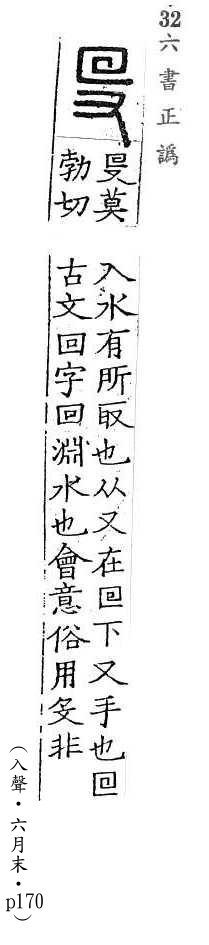 32六書正譌
𠬛莫
勃切
入水有所取也从又在囘下又手也囘
古文回字回淵水也會意俗用非
（入聲・六月末・p170）